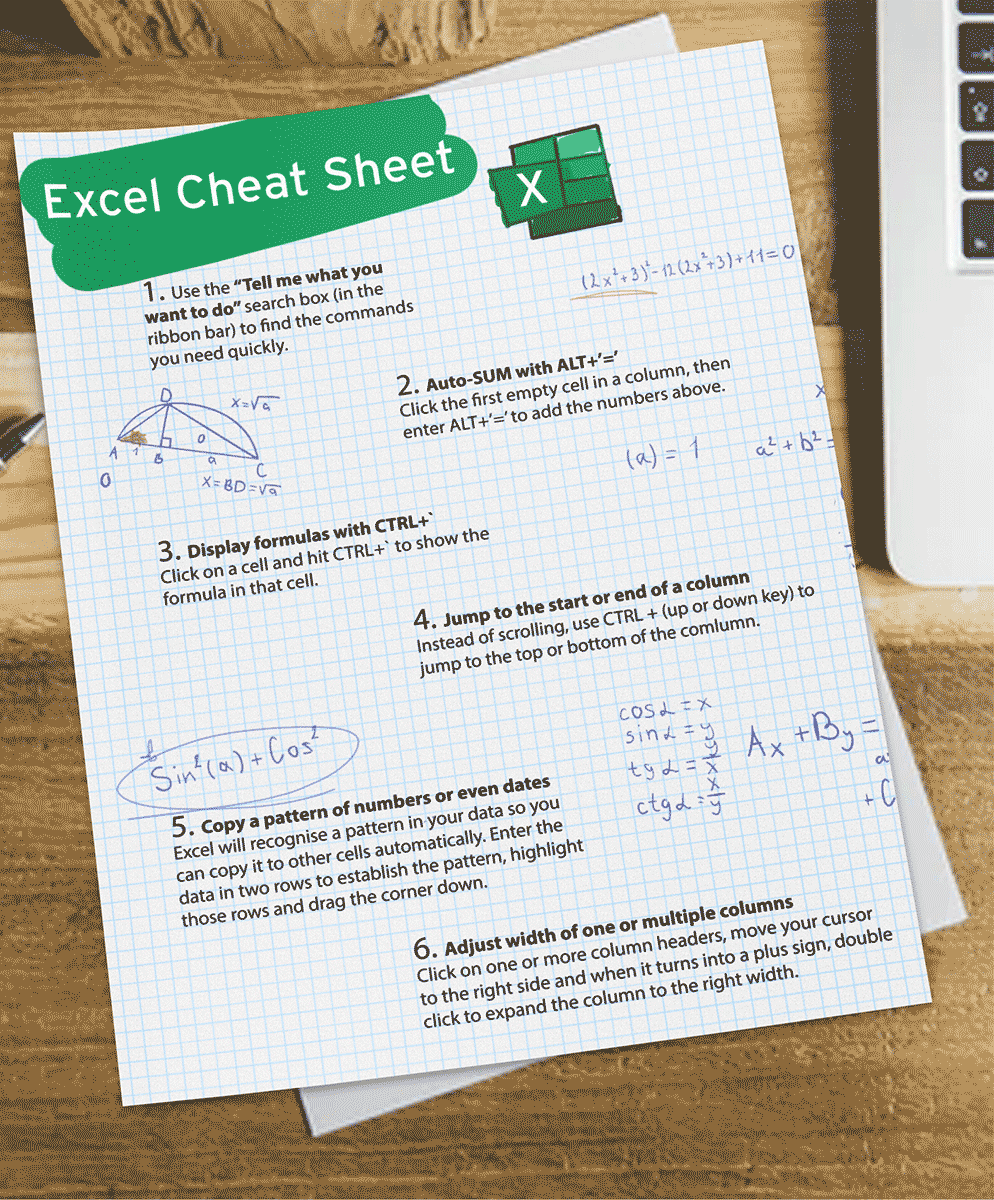 Excel Cheat Sheet
X
1. Use the “Tell me what you
want to do” search box (in the
ribbon bar) to find the commands
you need quickly.
(2x²+3)²-12(2x²+3)+11=0
2. Auto-SUM with ALT+’=’
Click the first empty cell in a column, then
enter ALT+’=’ to add the numbers above.
D
x=√a
A 1 B
o
a
C
O
X=BD=√a
x
(a) = 1
a² + b² =
3. Display formulas with CTRL+`
Click on a cell and hit CTRL+` to show the
formula in that cell.
4. Jump to the start or end of a column
Instead of scrolling, use CTRL + (up or down key) to
jump to the top or bottom of the comlumn.
Sin²(a)+Cos²
cosα=x
sinα=y
tgα=y/x
ctgα=x/y
Ax+By=
a
+C
5. Copy a pattern of numbers or even dates
Excel will recognise a pattern in your data so you
can copy it to other cells automatically. Enter the
data in two rows to establish the pattern, highlight
those rows and drag the corner down.
6. Adjust width of one or multiple columns
Click on one or more column headers, move your cursor
to the right side and when it turns into a plus sign, double
click to expand the column to the right width.